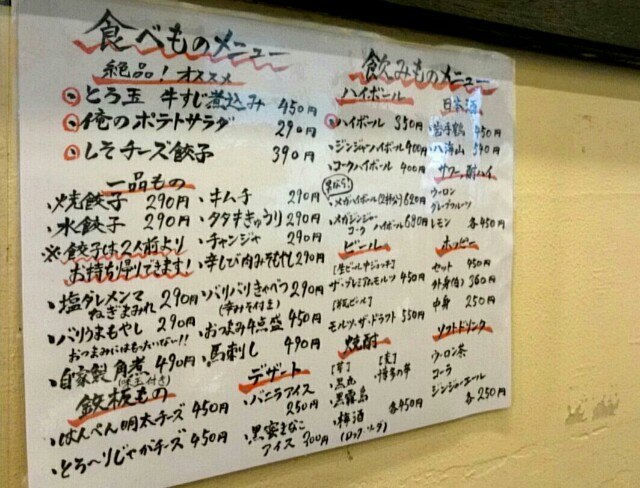 食べものメニュー
絶品！オススメ
とろ玉 牛すじ煮込み 450円
俺のポテトサラダ 290円
しそチーズ餃子 390円
一品もの
・焼餃子 290円
・水餃子 290円
※餃子は2人前より
お持ち帰りできます！
・塩ダレメンマ
ねぎまみれ 290円
・バリうまもやし 290円
おつまみにはもったいない!!
・自家製角煮 490円
(味玉付き)
・キムチ 290円
・タタききゅうり 290円
・チャンジャ 290円
・辛しび肉みそもやし 290円
・バリバリきゃべつ 290円
(辛みそ付き)
・おつまみ4点盛 450円
・馬刺し 490円
鉄板もの
・はんぺん明太チーズ 450円
・とろ〜りじゃがチーズ 450円
デザート
・バニラアイス
250円
・黒蜜きなこ
アイス 300円
飲みものメニュー
ハイボール
ハイボール 350円
・ジンジャーハイボール 400円
・コークハイボール 400円
・メガハイボール 620円
・メガジンジャー
コーク ハイボール 680円
ビール
[生ビール中ジョッキ]
ザ・プレミアムモルツ 450円
[瓶ビール]
モルツ・ザ・ドラフト 550円
焼酎
[芋]
・黒丸
・黒霧島
・梅酒
(ロック・ソーダ)
[麦]
・博多の華
各450円
日本酒
・岩手鶴 450円
・八海山 590円
サワー、酎ハイ
ウーロン
グレープフルーツ
レモン 各450円
ホッピー
セット 450円
外身(白) 360円
中身 250円
ソフトドリンク
ウーロン茶
コーラ
ジンジャーエール
各250円